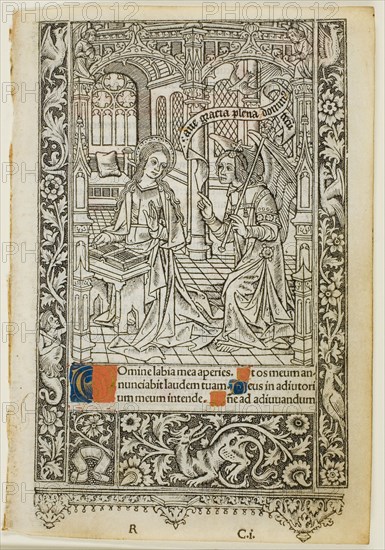 aue gracia plena domin
omine labia mea aperies. t os meum an
nunciabit laudem tuam eus in adiutori
um meum intende. ne ad adiuuandum
R C.i.
PHOTO12